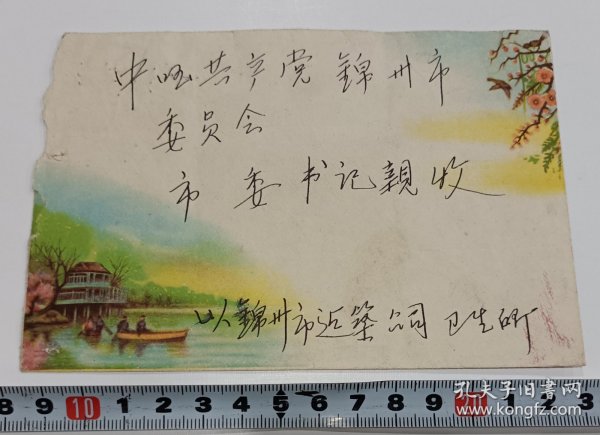 中国共产党錦州市
委员会
市委书记親收
以錦州市近築公司卫生所
8 9 10 1 2 3 4 5 6 7 8 9 20 1 2 3
孔夫子旧書网
www.kongfz.com